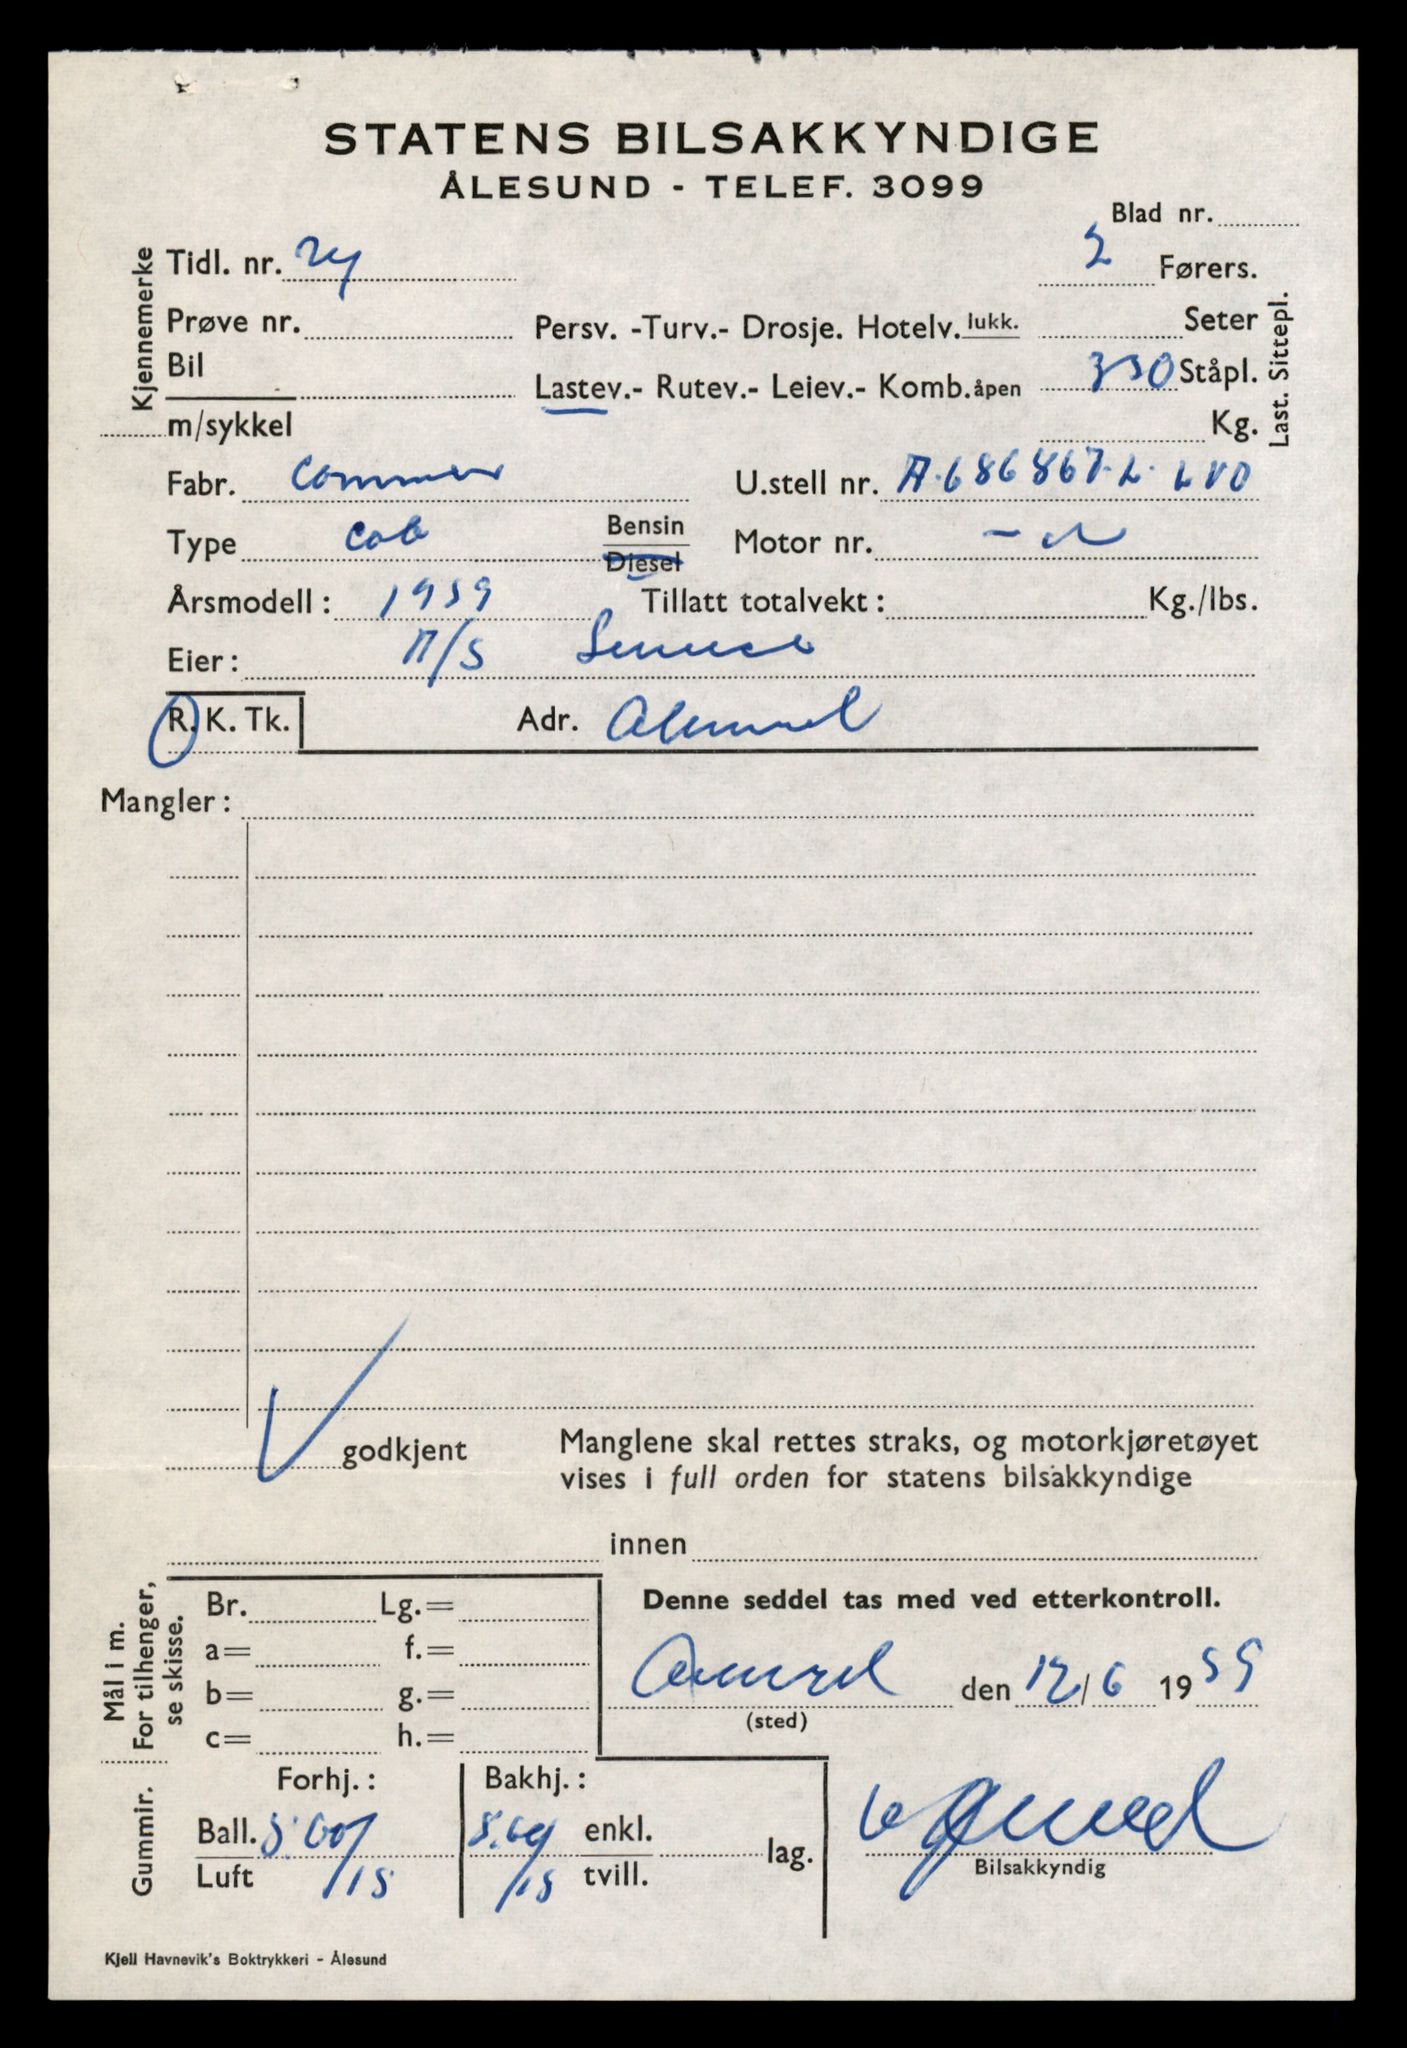 STATENS BILSAKKYNDIGE
ÅLESUND - TELEF. 3099
Blad nr.
Kjennemerke
Tidl. nr. ny
2 Førers.
Prøve nr.
Persv. -Turv.- Drosje. Hotelv. lukk.
Seter
Bil
Lastev.- Rutev.- Leiev.- Komb. åpen
350 Ståpl.
m/sykkel
Kg.
Last. Sittepl.
Fabr. Commer
U.stell nr. A.686867.L.
Type Cob
Bensin
Diesel
Motor nr.
Årsmodell: 1959
Tillatt totalvekt: Kg./lbs.
Eier: A/S
R. K. Tk.
Adr. Ålesund
Mangler:
godkjent
Manglene skal rettes straks, og motorkjøretøyet
vises i full orden for statens bilsakkyndige
innen
Mål i m.
For tilhenger,
se skisse.
Br. Lg.=
a= f.=
b= g.=
c= h.=
Denne seddel tas med ved etterkontroll.
Ålesund den 12/6 1959
(sted)
Gummir.
Forhj.: Bakhj.:
Ball. 5.00/15 5.00/15 enkl.
Luft tvill.
lag.
Bilsakkyndig
Kjell Havnevik's Boktrykkeri - Ålesund